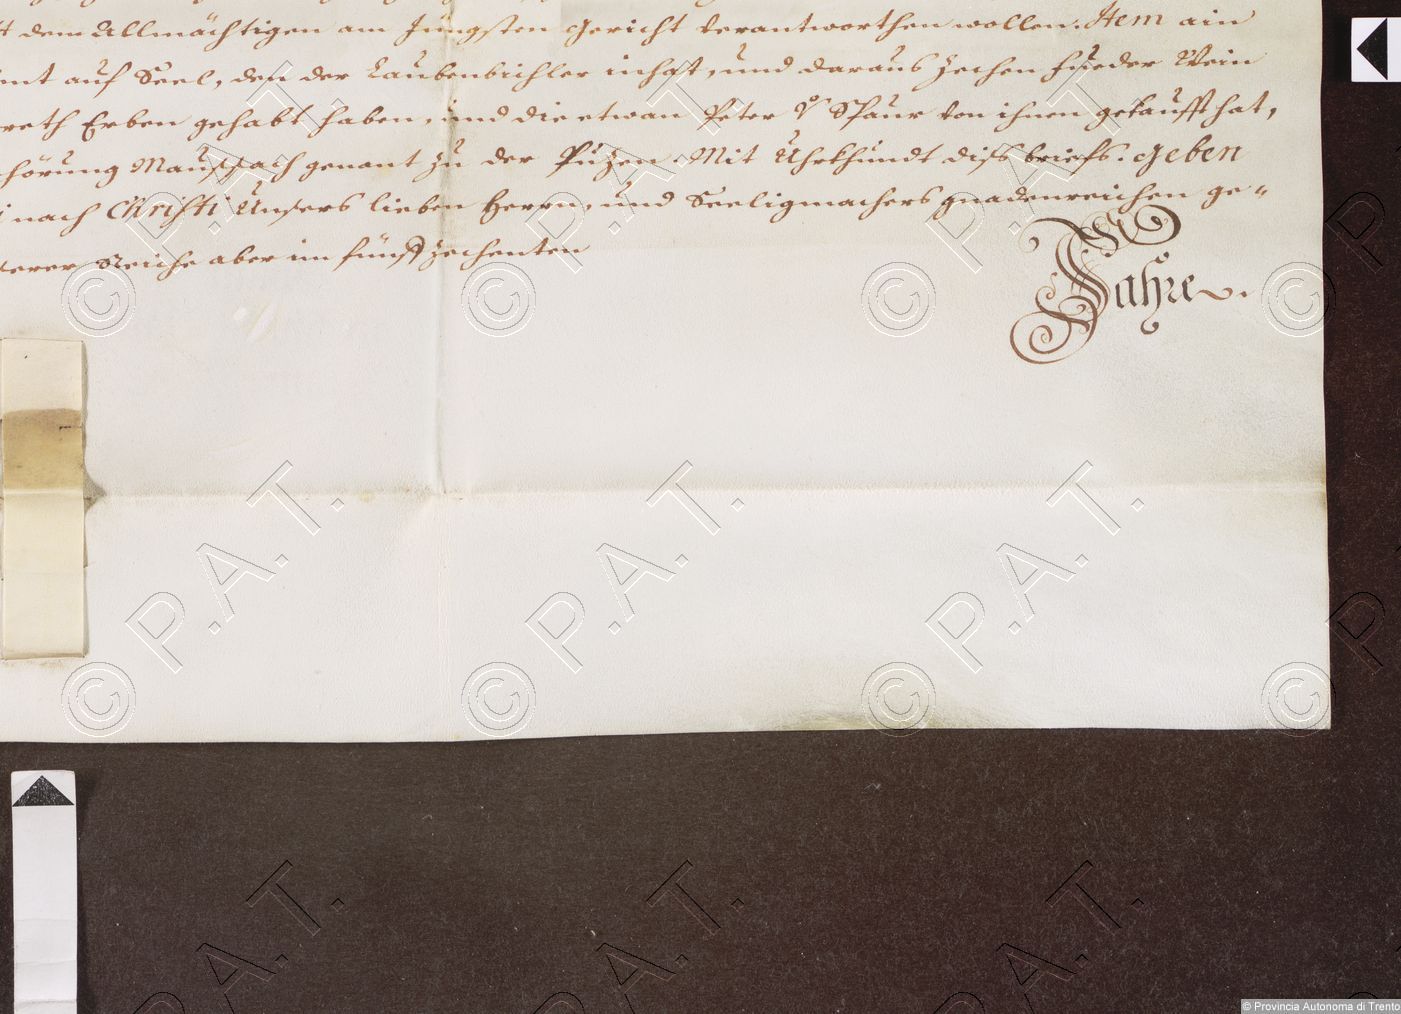 dem Allmächtigen am Jüngsten gericht verantworthen wollen. Item ain
auf Seel, den der Laubenbichler inhat, und daraus zechen fueder Wein
Erben gehabt haben, und die etwan Peter v Spaur von ihnen gekaufft hat,
hörung genant zu der Püzen. Mit Uhrkhundt diss briefs. geben
nach Christi Unsers lieben Herrn, und Seeligmachers gnadenreichen ge-
serer Reiche aber im fünffzechenten
Jahre
© P.A.T.
© Provincia Autonoma di Trento